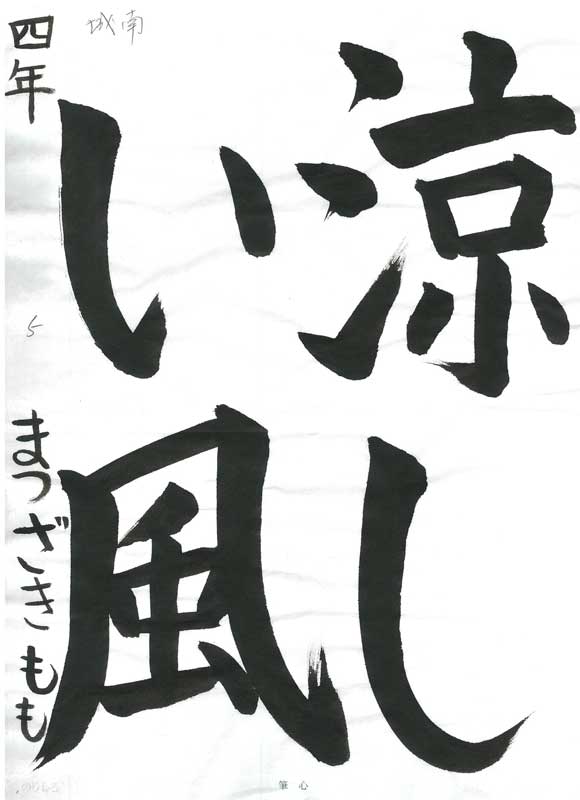 涼し
い風
四年 まつざきもも
城南
5
筆心